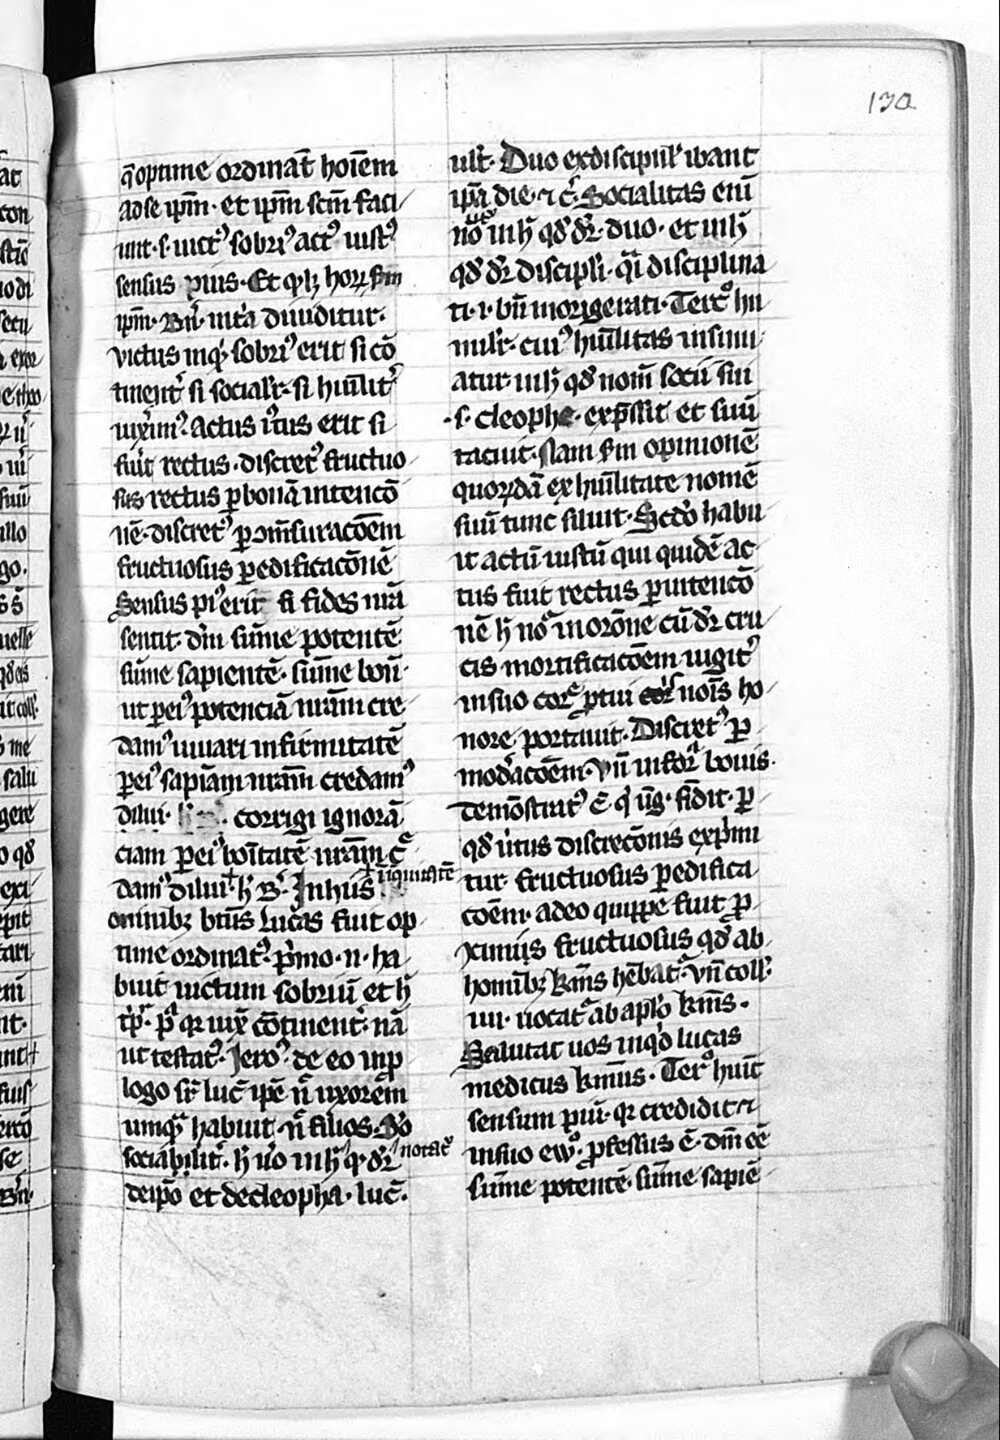 130
q̄ optime ordinat̄ hoīem
ad se ip̄m · et ip̄m sc̄m faci
unt · s · uict⁹ sobri⁹ act⁹ iust⁹
sensus pius · Et
ip̄m · Bn̄ · uita diuiditur ·
victus inq̇ sobri⁹ erit si cō
tinent̄ si social̄r · si humilit̄
uixim⁹ · Actus iustus erit si
fiu̇t rectus · discret⁹ fructuo
sus rectus ꝑ bonā intencō
nē · discret⁹ ꝑ ꝯmēsuracōem
fructuosus ꝑ edificacōnē
Sensus pi⁹ erit si fides nr̄a
sentit · dm̄ sūme potentē
sūme sapientē · sūme bonū ·
ut ꝑ ei⁹ potenciā nr̄am cre
dam⁹ iuuari infirmitatē
ꝑ ei⁹ sapiam nr̄am credam⁹
dilui · corrigi ignorā
ciam ꝑ ei⁹ bonitatē nr̄am c̄
dam⁹ dilui + In hiis iniquitatē
omnibꝫ btūs lucas fuit op
time ordinat⁹ · p̄mo · n · ha
buit uictum sobriū et
ꝗꝛ uix̄ cōtinent̄ · nā
ut testat⁹ · Jero⁹ · de eo in ꝓ
logo sr̄ luc̄ ip̄e n̄ uxorem
umqᵃ habuit · n̄ filios ·
sociabilit̄ · notat̄
de ip̄o et de cleopha · luc̄ ·
ult̄ · Duo ex discipul̄ ibant
ip̄a die · ⁊ c̄ · Socialitas eiū
duo · et
qd̄ dr̄ discipli · qᵃi disciplina
ti · i · bn̄ morigerati · Terc̊ hu
milr̄ · cui⁹ humilitas insinu
atur · qd̄ nom̄ socii sui
· s · cleophe · exp̄ssit et suū
tacuit · Nam sm̄ opinionē
quorꝫdā ex humilitate nomē
suū tunc siluit · Scd̊o habu
it actū iustū qui quidē ac
tus fuit rectus ꝑ intencō
nē cū dr̄ cru
cis mortificacōem iugit̄
in suo corꝑe ꝓ tui nois ho
nore portauit · Discret⁹ ꝑ
modacōem · vn̄ bouis ·
demōstrat⁹ ē
qd̄ uirtus discrecōnis exp̄mi
tur · fructuosus ꝑ edifica
cōem · adeo quippe fuit ꝓ
ximiis fructuosus qd̄ ab
homibꝫ km̄s hēbat̄ · vn̄ coll̄
iiii · uocat̄ ab apl̄o km̄s ·
Salutat uos inqd̄ lucas
medicus km̄us · Terc̊ huit
sensum pium · ꝗꝛ credidit ⁊
in suo eẘ · ꝓfessus ē · dm̄ eē
sūme potentē · sūme sapiē